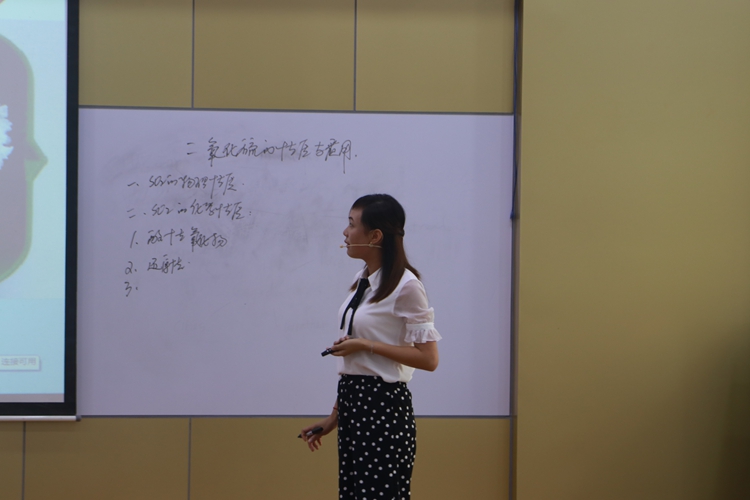 二氧化硫的性质与应用.
一、SO2的物理性质.
二、SO2的化学性质.
1. 酸性氧化物
2. 还原性.
3.